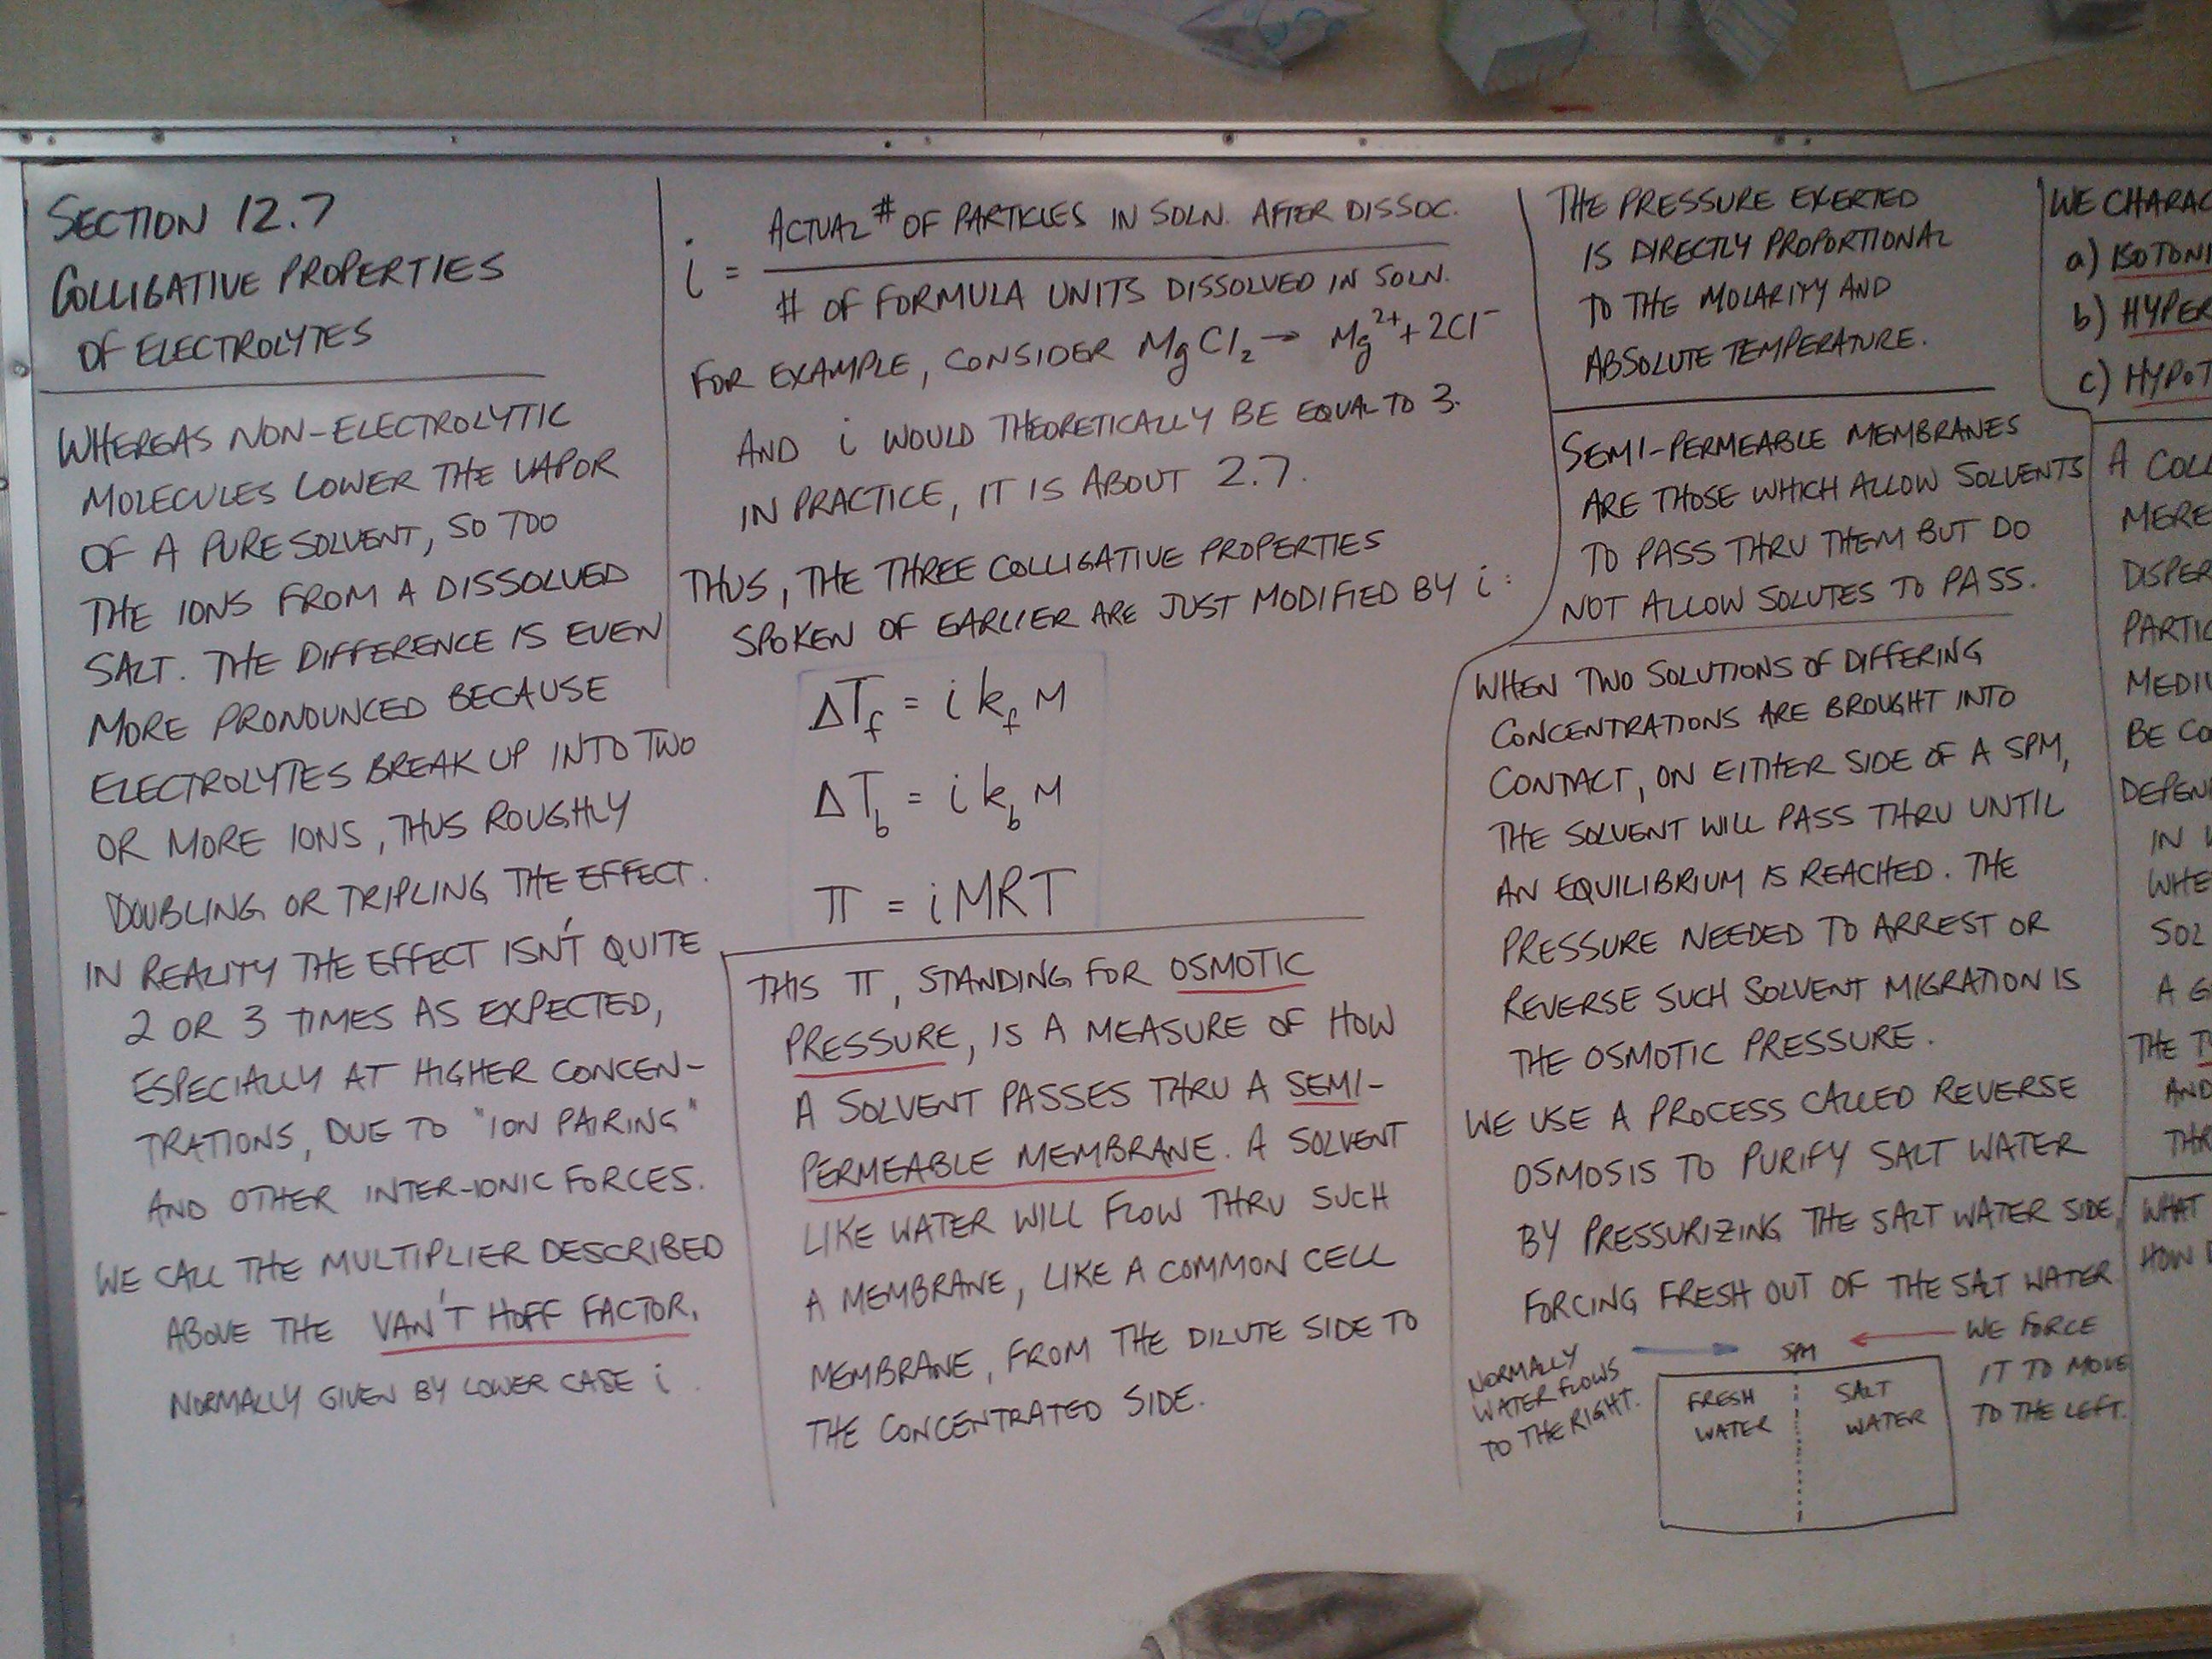 SECTION 12.7
COLLIGATIVE PROPERTIES
OF ELECTROLYTES
WHEREAS NON-ELECTROLYTIC
MOLECULES LOWER THE VAPOR
OF A PURE SOLVENT, SO TOO
THE IONS FROM A DISSOLVED
SALT. THE DIFFERENCE IS EVEN
MORE PRONOUNCED BECAUSE
ELECTROLYTES BREAK UP INTO TWO
OR MORE IONS, THUS ROUGHLY
DOUBLING OR TRIPLING THE EFFECT.
IN REALITY THE EFFECT ISN'T QUITE
2 OR 3 TIMES AS EXPECTED,
ESPECIALLY AT HIGHER CONCEN-
TRATIONS, DUE TO "ION PAIRING"
AND OTHER INTER-IONIC FORCES.
WE CALL THE MULTIPLIER DESCRIBED
ABOVE THE VAN'T HOFF FACTOR,
NORMALLY GIVEN BY LOWER CASE i.
i = ACTUAL # OF PARTICLES IN SOLN. AFTER DISSOC.
# OF FORMULA UNITS DISSOLVED IN SOLN.
FOR EXAMPLE, CONSIDER MgCl₂ → Mg²⁺ + 2Cl⁻
AND i WOULD THEORETICALLY BE EQUAL TO 3.
IN PRACTICE, IT IS ABOUT 2.7.
THUS, THE THREE COLLIGATIVE PROPERTIES
SPOKEN OF EARLIER ARE JUST MODIFIED BY i:
ΔT_f = i k_f M
ΔT_b = i k_b M
π = iMRT
THIS π, STANDING FOR OSMOTIC
PRESSURE, IS A MEASURE OF HOW
A SOLVENT PASSES THRU A SEMI-
PERMEABLE MEMBRANE. A SOLVENT
LIKE WATER WILL FLOW THRU SUCH
A MEMBRANE, LIKE A COMMON CELL
MEMBRANE, FROM THE DILUTE SIDE TO
THE CONCENTRATED SIDE.
THE PRESSURE EXERTED
IS DIRECTLY PROPORTIONAL
TO THE MOLARITY AND
ABSOLUTE TEMPERATURE.
SEMI-PERMEABLE MEMBRANES
ARE THOSE WHICH ALLOW SOLVENTS
TO PASS THRU THEM BUT DO
NOT ALLOW SOLUTES TO PASS.
WHEN TWO SOLUTIONS OF DIFFERING
CONCENTRATIONS ARE BROUGHT INTO
CONTACT, ON EITHER SIDE OF A SPM,
THE SOLVENT WILL PASS THRU UNTIL
AN EQUILIBRIUM IS REACHED. THE
PRESSURE NEEDED TO ARREST OR
REVERSE SUCH SOLVENT MIGRATION IS
THE OSMOTIC PRESSURE.
WE USE A PROCESS CALLED REVERSE
OSMOSIS TO PURIFY SALT WATER
BY PRESSURIZING THE SALT WATER SIDE,
FORCING FRESH OUT OF THE SALT WATER.
NORMALLY
WATER FLOWS
TO THE RIGHT.
SPM
WE FORCE
IT TO MOVE
TO THE LEFT.
FRESH
WATER
SALT
WATER
WE CHARAC
a) ISOTONI
b) HYPER
c) HYPOT
A COLL
MERE
DISPER
PARTIC
MEDIU
BE CO
DEPEN
IN
WHE
SOL
A G
THE T
AND
THR
WHAT
HOW